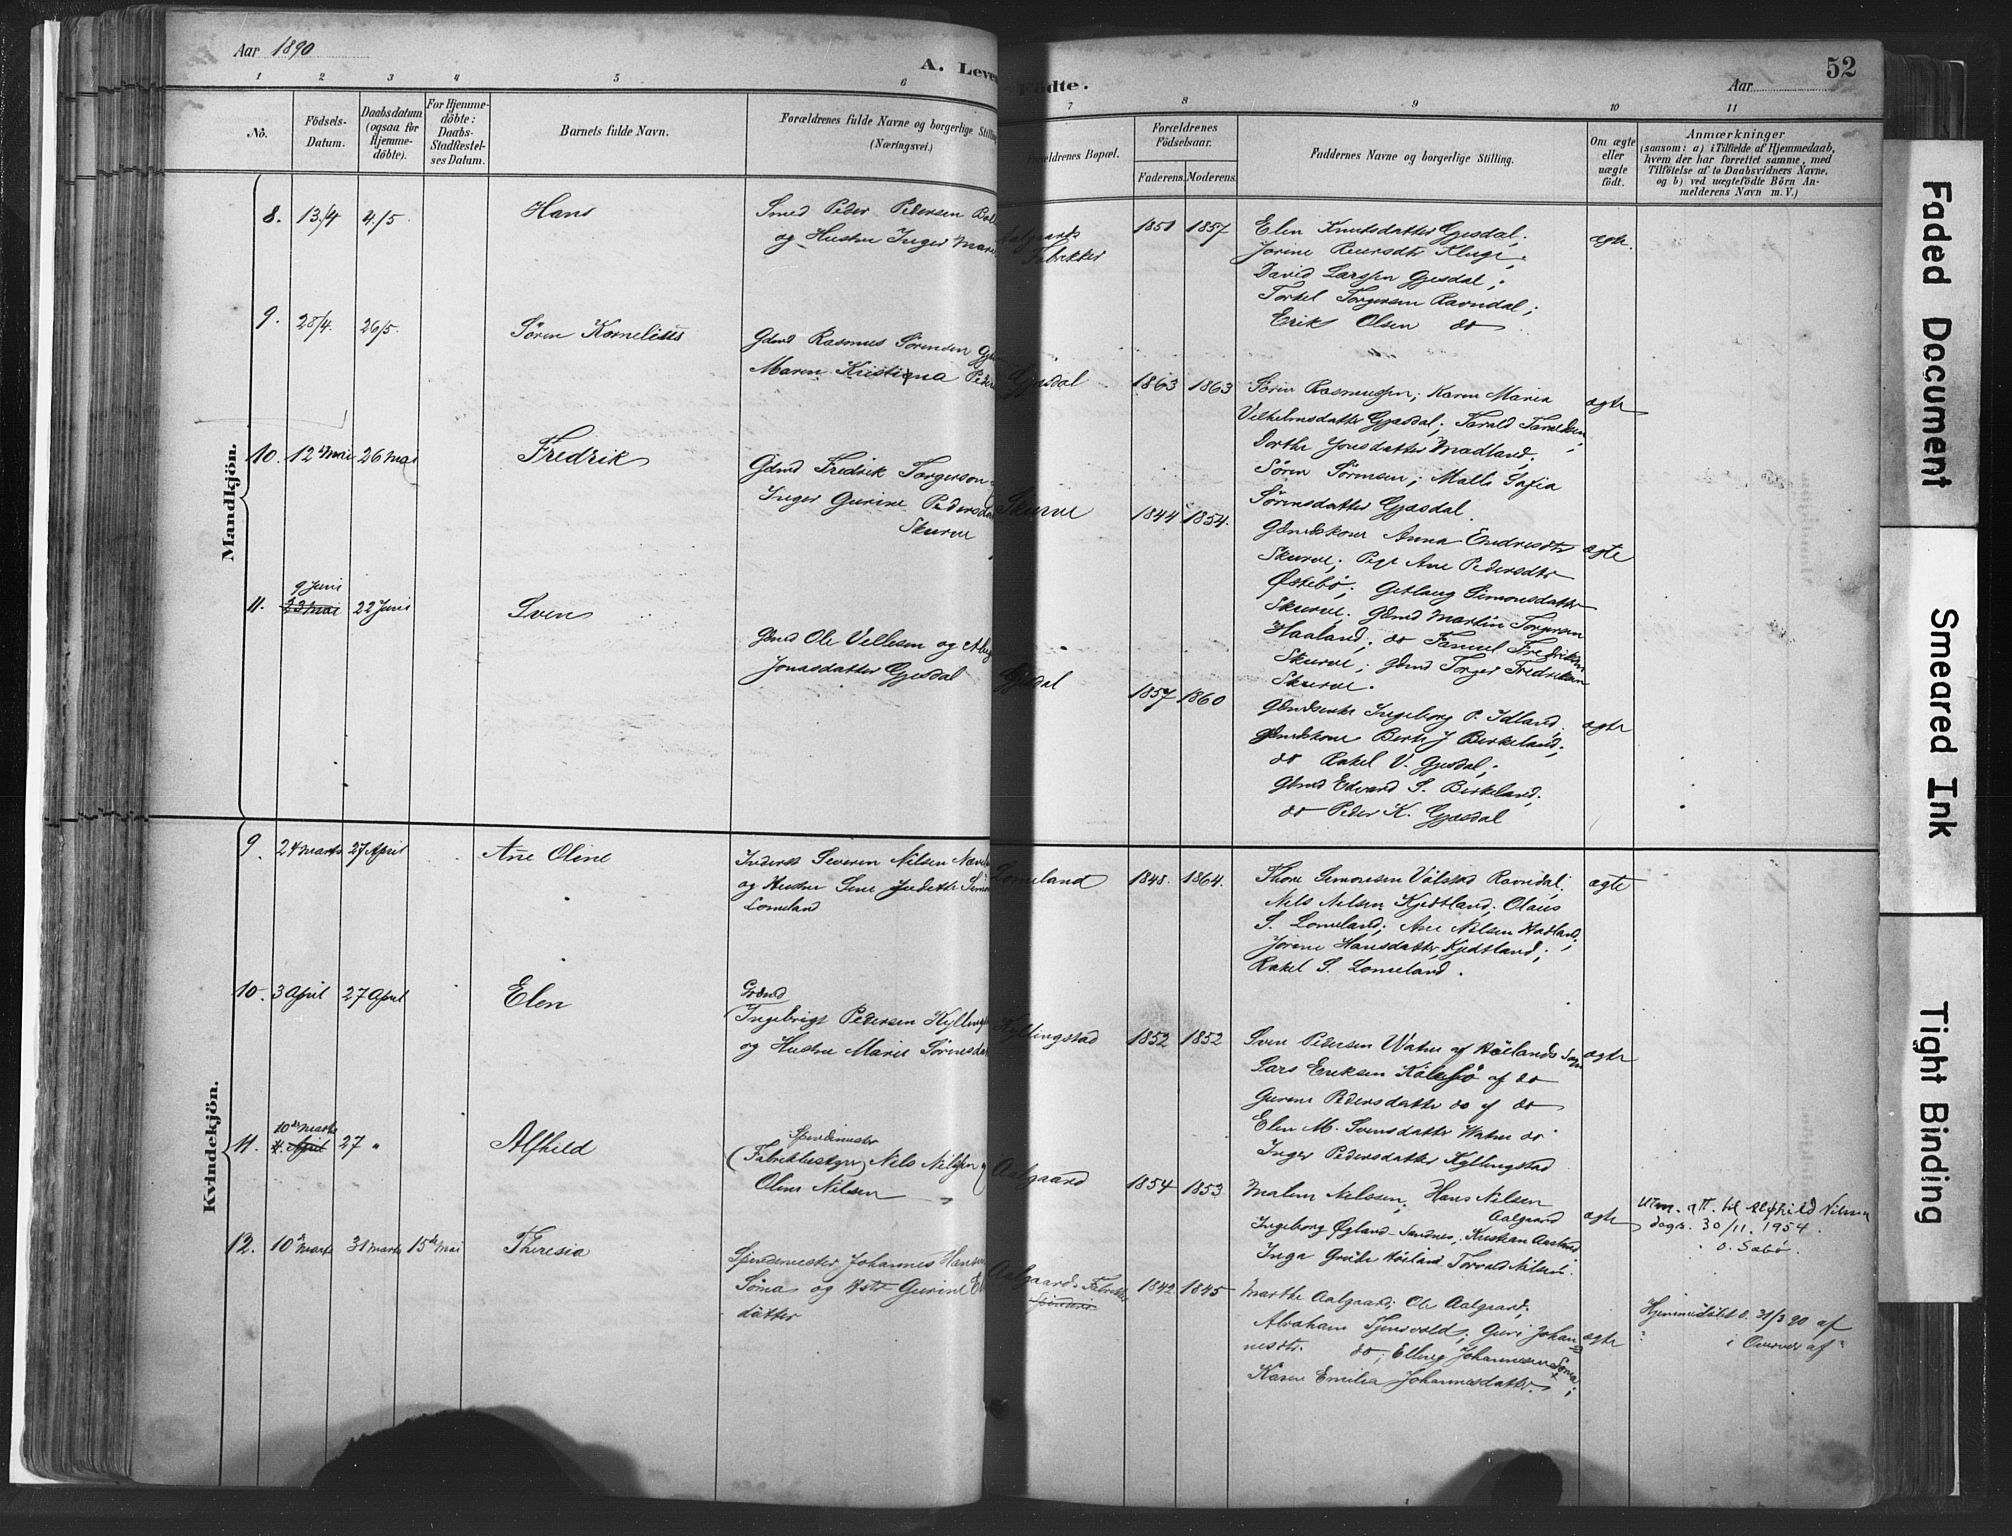 Aar 1890
A. Leve
Födte.
52
Aar
1 2 3 4 5 6 7 8 9 10 11
No.
Födsels-
Datum.
Daabsdatum
(ogsaa for
Hjemme-
döbte).
For Hjemme-
döbte:
Daabs-
Stadfæstel-
ses Datum.
Barnets fulde Navn.
Forældrenes fulde Navne og borgerlige Stilling
(Næringsvei.)
Forældrenes Bopæl.
Forældrenes
Födselsaar.
Faderens. Moderens.
Faddernes Navne og borgerlige Stilling.
Om ægte
eller
uægte
födt.
Anmærkninger
(saasom: a) i Tilfælde af Hjemmedaab,
hvem der har forrettet samme, med
Tilföielse af to Daabsvidners Navne.
og b) ved uægtefödte Börn An-
melderens Navn m. V.)
Mandkjön.
8. 13/4 4/5 Hans
Smed Peder Pedersen
og Hustru Inger Marie
Aalgaards
Fabrikker
1851 1857
Elen Knutsdatter Gjesdal;
Jorine Peersdtr Kluge;
David Larssen Gjesdal;
Torkel Torgersen Ravndal;
Erik Olsen do
ægte.
9. 28/4. 26/5. Sören Kornelius
Gdmd Rasmus Sörensen
Maren Kristiana
Gjesdal
1863 1863
Sörin Rasmussen; Karen Maria
Vilhelmsdatter Gjesdal; Tarald
Dorthe Jonsdatter Madland;
Sören Sörensen; Malli Sofia
Sörensdatter Gjesdal.
ægte
10. 12 Mai 26 Mai Fredrik
Gdmd Fredrik Torgerson
Inger Gurine Pedersdat
Skurve
Skurve
1844 1854.
Gdmdskone Anna Endresdtr
Skurve; Pige Ane Pedersdtr
Östebö; Getlaug Simonsdatter
Skurve; Gdmd Martin Torgersen
Haaland; do Samuel Fredriksen
Skurve; Gdmd Torger Fredriksen
Skurve.
ægte
11. 9 Juni
23 Mai 22 Juni Sven
Gdmd Ole Vellesen og
Jonasdatter Gjesdal
Gjesdal
1857 1860
Ingeborg P. Idland
Gdmdskone Berte J Birkeland;
do Rakel V. Gjesdal;
Gdmd Edvard S. Birkeland;
do Peder K. Gjesdal
ægte
Kvindekjön.
9. 24 Marts 27 April Ane Oline
Inderst Severin Nilsen
og Hustru Sine Judethe
Lomeland
Lomeland
1848. 1864.
Thore Simonsen Ravndal;
Nils Nilsen Kjedtland; Olaus
S. Lomeland; Ane Nilsen Hadland;
Jorine Hansdatter Kjedtland;
Rakel S. Lomeland.
ægte
10. 3 April 27 April Elen
Grdmd
Ingebrigt Pedersen
og Hustru Marie Sörensdat
Kyllingstad
1852 1852
Sven Pedersen Watne af Höilands Sogn
Lars Eriksen af do
Gurine Pedersdatter do af do
Elen M. Svensdatter Watne do
Inger Pedersdatter Kyllingstad
ægte
11. 10de Marts
4. April 27 " Alfhild
Spindemester
(Fabrikbestyrer) Nils Nilssen
Oline Nilsen
Aalgaard
1854 1853
Malene Nilssen; Hans Nilsen
Aalgaard
Ingeborg Ögland Sandnes; Kristian
Inga Grude Höiland Torvald Nilsen.
ægte
Utm. att. til Alfhild Nilssen
dags. 30/11. 1954.
O. Sæbö.
12. 10de Marts 31 Marts 15de Mai Theresia
Spindemester Johannes Hansen
Söma og Hstr Gurine
datter
Aalgaards Fabrikker
1842 1845
Marthe Aalgaard; Ole Aalgaard;
Abraham; Guri Johan
nesdtr. do; Elling Johannesen Söma;
Karen Emilia Johannesdatter.
ægte
Hjemmedöbt d. 31/3 90 af
i Overvær af
Faded Document
Smeared Ink
Tight Binding